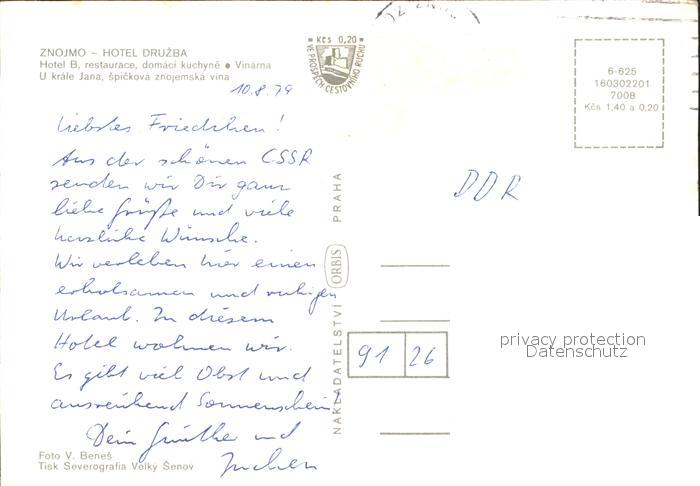 ZNOJMO – HOTEL DRUŽBA
Hotel B, restaurace, domácí kuchyně ● Vinárna
U krále Jana, špičková znojemská vína
10.8.79
Liebstes Friedchen!
Aus der schönen CSSR
senden wir Dir ganz
liebe Grüße und viele
herzliche Wünsche.
Wir verleben hier einen
erholsamen und ruhigen
Urlaub. In diesem
Hotel wohnen wir.
Es gibt viel Obst und
ausreichend Sonnenschein!
Dein Günther und
Foto V. Beneš
Tisk Severografia Velký Šenov
Kčs 0,20
VE PROSPĚCH CESTOVNÍHO RUCHU
NAKLADATELSTVÍ ORBIS PRAHA
6-625
160302201
7008
Kčs 1,40 a 0,20
DDR
91 26
privacy protection
Datenschutz